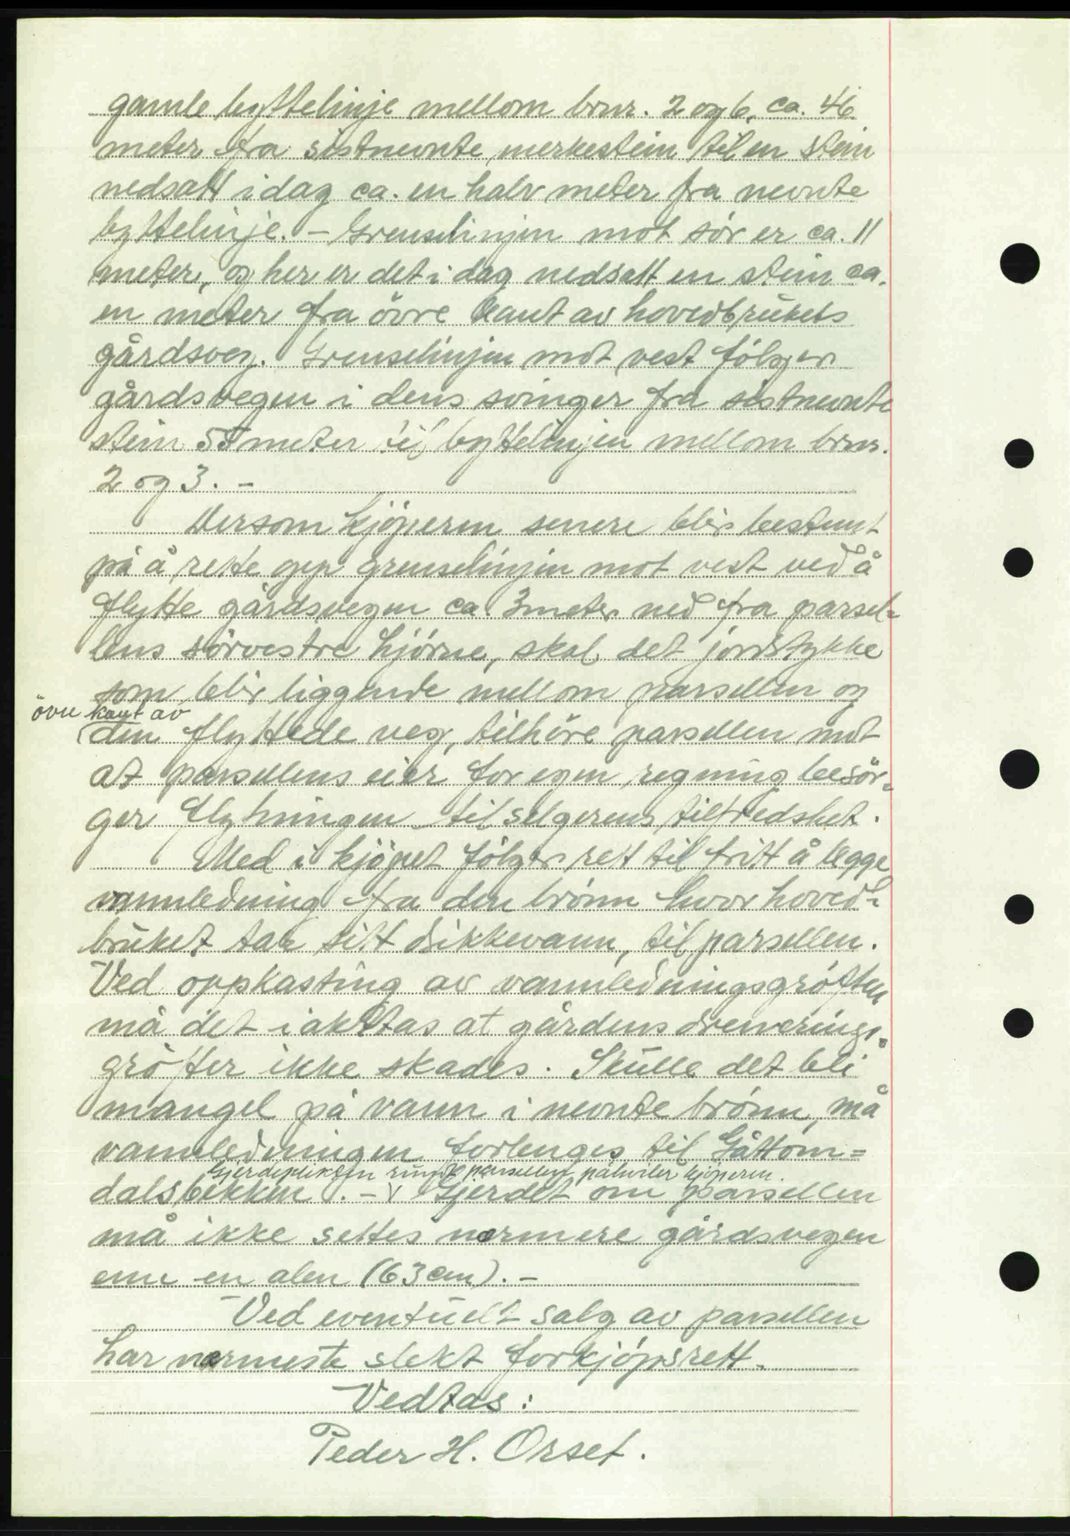 gamle byttelinje mellom brnr. 2 og 6, ca. 46
meter fra sistnevnte merkestein til en stein
nedsatt idag ca. en halv meter fra nevnte
byttelinje. - Grenselinjen mot sör er ca. 11
meter, og her er det i dag nedsatt en stein ca.
en meter fra övre kant av hovedbrukets
gårdsveg. Grenselinjen mot vest fölger
gårdsvegen i dens svinger fra sistnevnte
stein 55 meter til byttelinjen mellom brnr.
2 og 3. -
Dersom kjöperen senere blir bestemt
på å rette opp grenselinjen mot vest ved å
flytte gårdsvegen ca. 3 meter ned fra parsel-
lens sörvestre hjörne, skal det jordstykke
som blir liggende mellom parsellen og
övre kant av
den flyttede veg, tilhöre parsellen mot
at parsellens eier for egen regning besör-
ger flytningen til selgerens tilfredshet.
Med i kjöpet fölger rett til fritt å legge
vannledning fra den brönn hvor hoved-
bruket tar sitt drikkevann, til parsellen.
Ved oppkasting av vannledningsgröften
må det iakttas at gårdens drenerings-
gröfter ikke skades. Skulle det bli
mangel på vann i nevnte brönn, må
vannledningen forlenges til Gåttom=
Gjerdeplikten rundt parsellen påhviler kjöperen.
dalsbekken. - v Gjerdet om parsellen
må ikke settes nærmere gårdsvegen
enn en alen (63 cm). -
Ved eventuelt salg av parsellen
har nærmeste slekt forkjöpsrett.
Vedtas:
Peder H. Orset.